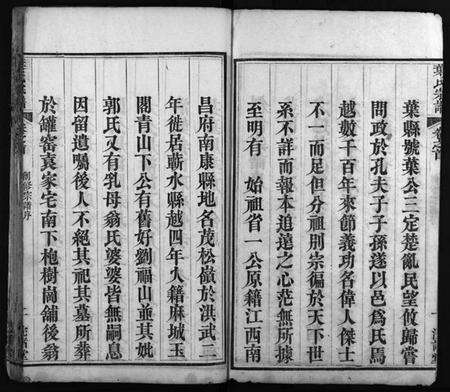 葉氏宗譜
卷之首
葉縣號葉公三定楚亂民望攸歸嘗
問政於孔夫子子孫遂以邑為氏焉
越數千百年來節義功名偉人傑士
不一而足但分祖別宗徧於天下世
系不詳而報本追遠之心茫無所據
至明有 始祖省一公原籍江西南
昌府南康縣地名茂松嶺於洪武二
年徙居蘄水縣越四年入籍麻城玉
閣青山下公有舊好劉福山並其妣
郭氏又有乳母翁氏婆婆皆無嗣息
因留遺囑後人不絕其祀其墓所葬
於罐窑袁家宅南下枹樹崗舖後翁